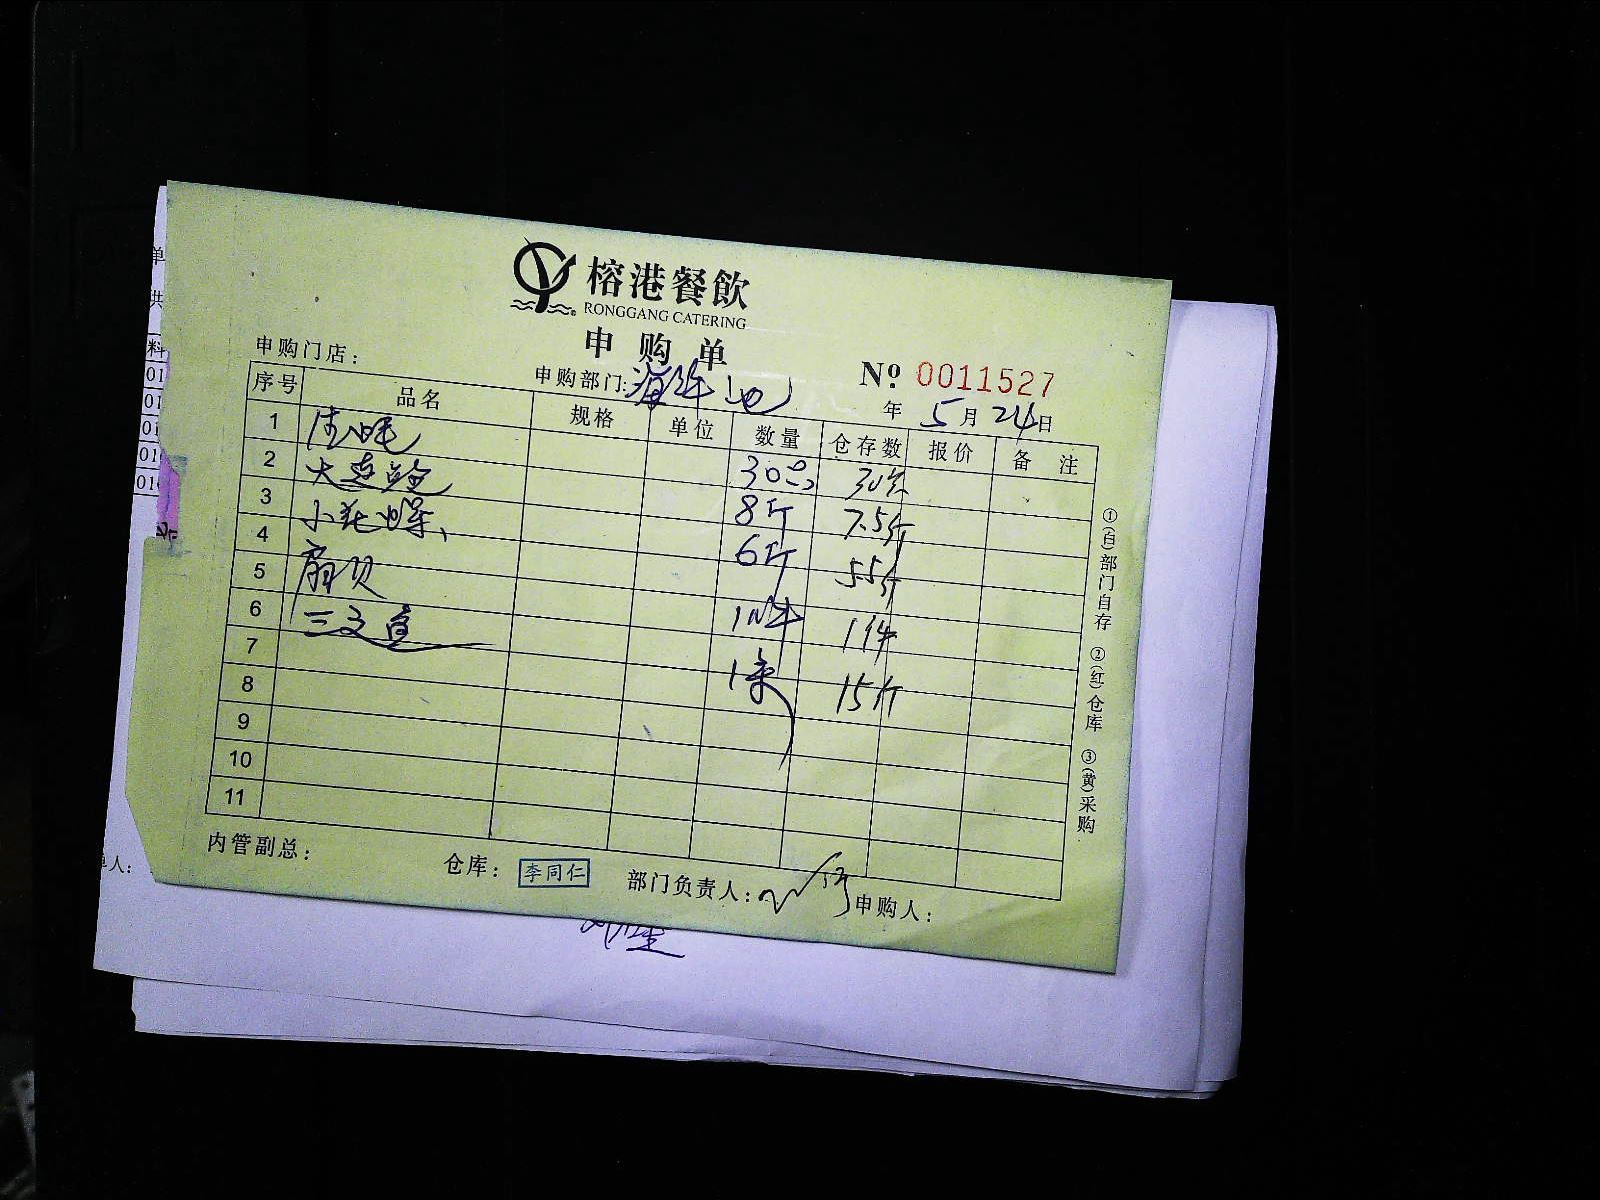 榕港餐飲
RONGGANG CATERING
申购单
申购门店：
申购部门：海鲜池
№ 0011527
年 5月 24日
序号 品名 规格 单位 数量 仓存数 报价 备注
1 生蚝 30只 30只
2 大连鲍 8斤 7.5斤
3 小花螺、 6斤 5.5斤
4 扇贝 1件 1件
5 三文鱼 1条 15斤
6
7
8
9
10
11
①(白)部门自存 ②(红)仓库 ③(黄)采购
内管副总： 仓库：李同仁 部门负责人： 申购人：
单
供
料
01
01
01
01
010
单人：